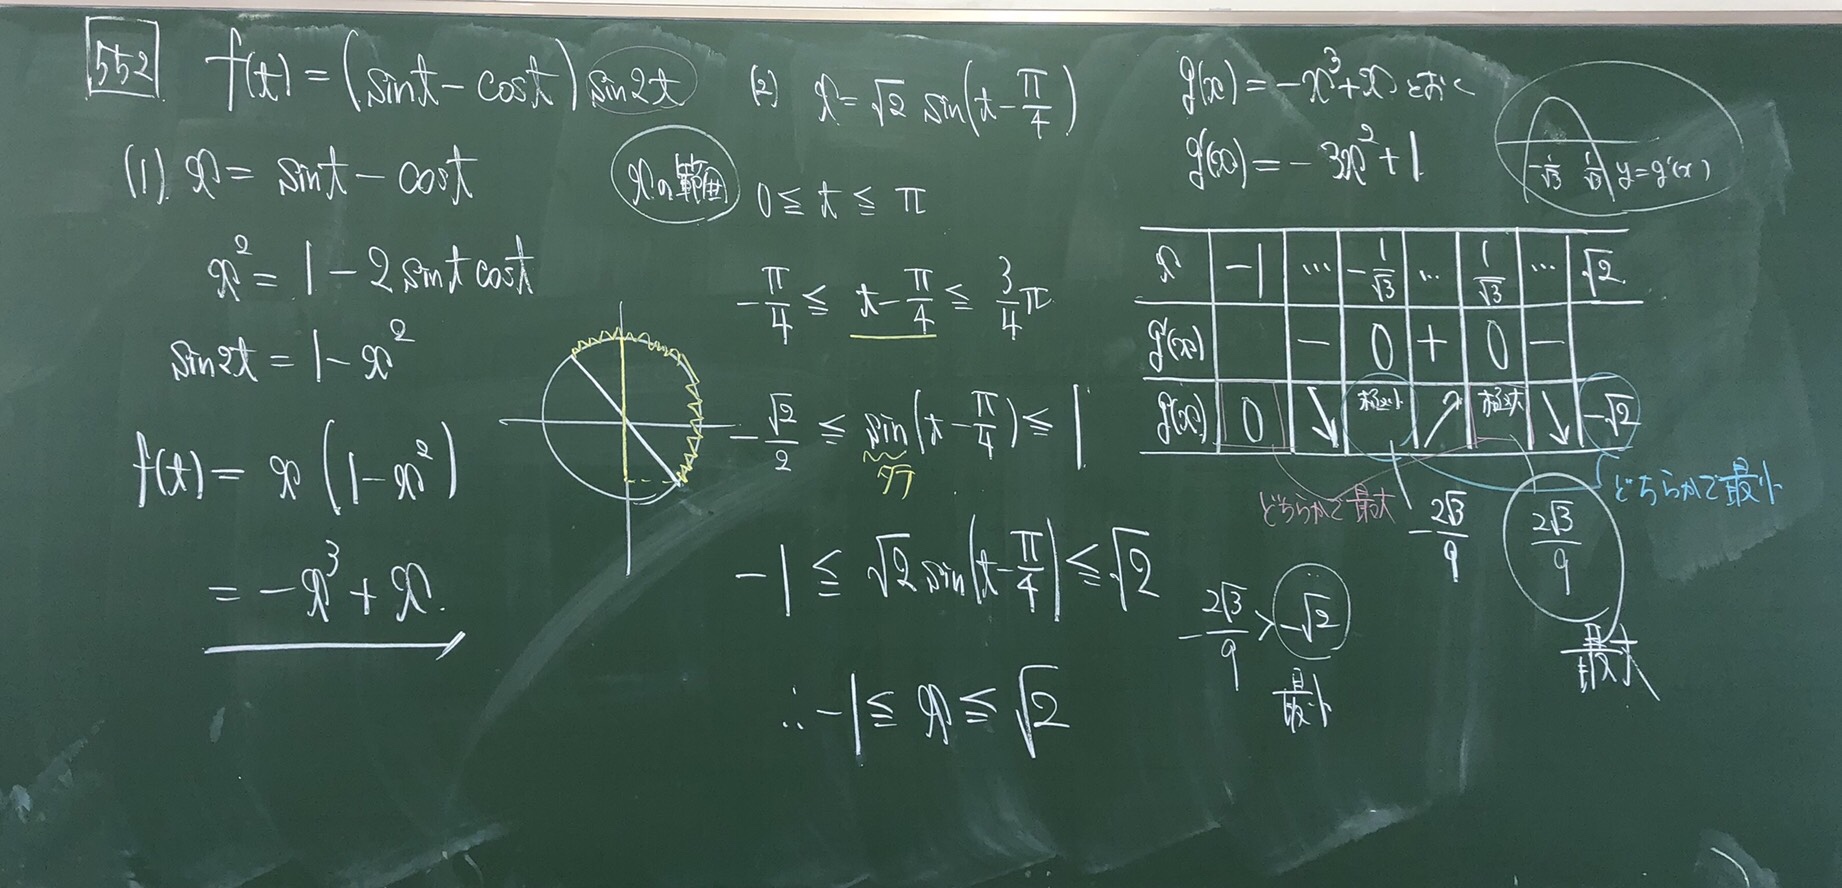 552
f(t) = (sint - cost) sin2t
(1) x = sint - cost
x² = 1 - 2 sint cost
sin2t = 1 - x²
f(t) = x (1 - x²)
= -x³ + x.
(2) x = √2 sin(t - π/4)
xの範囲
0 ≦ t ≦ π
-π/4 ≦ t - π/4 ≦ 3/4 π
-√2/2 ≦ sin(t - π/4) ≦ 1
-1 ≦ √2 sin(t - π/4) ≦ √2
∴ -1 ≦ x ≦ √2
g(x) = -x³ + x とおく
g'(x) = -3x² + 1
-1/√3 1/√3 y = g'(x)
x -1 … -1/√3 … 1/√3 … √2
g'(x) - 0 + 0 -
g(x) 0 ↘ 極小 ↗ 極大 ↘ -√2
どちらかで最大
どちらかで最小
-2√3/9
2√3/9
最大
-2√3/9 > -√2
最小